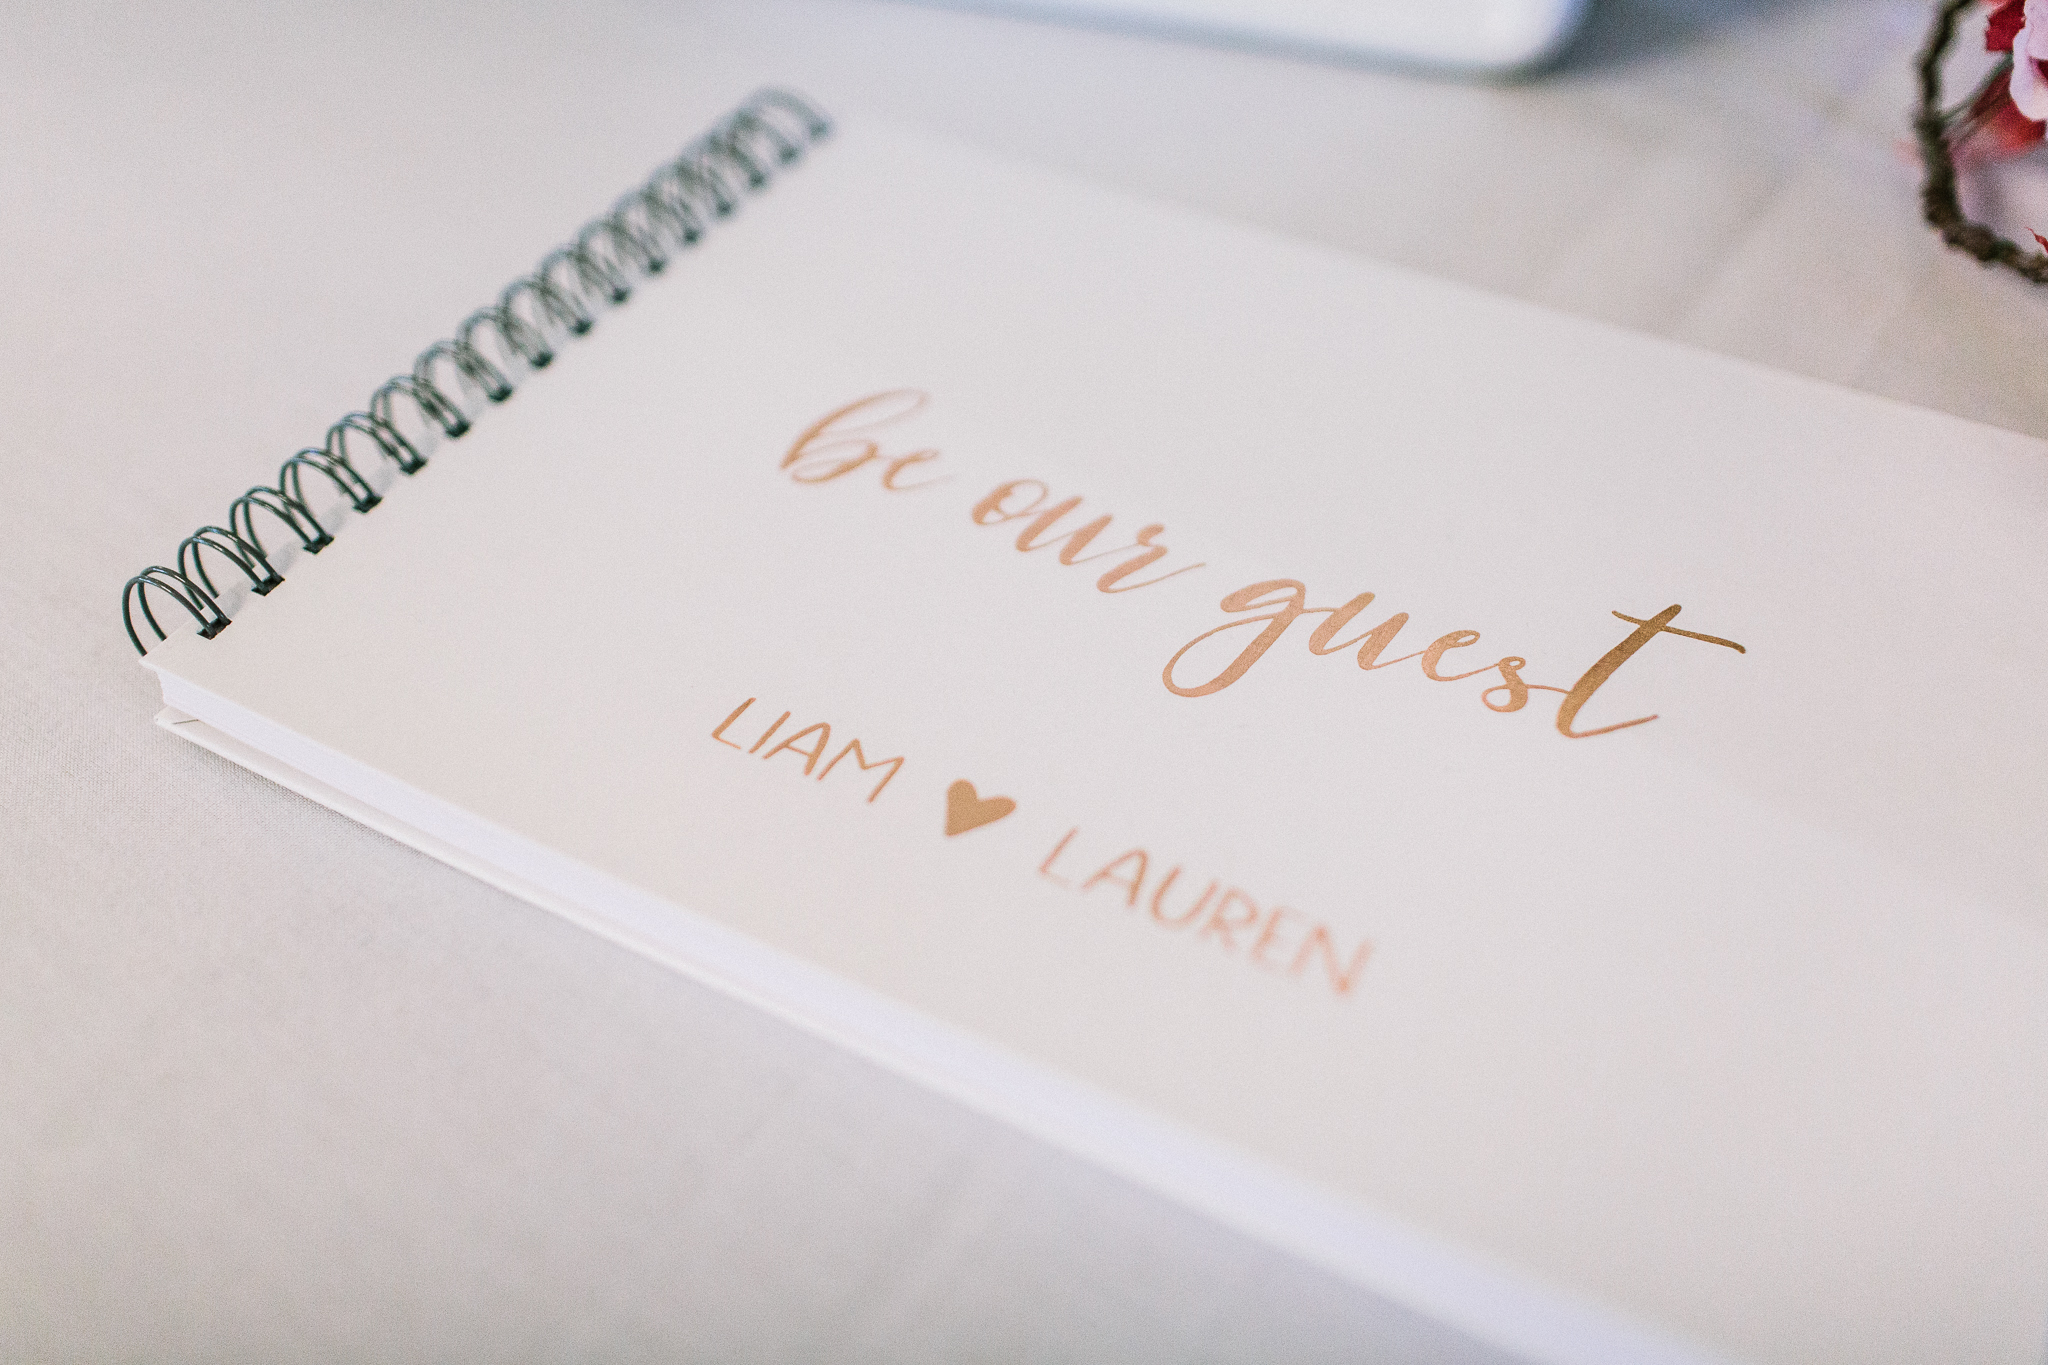 be our guest
LIAM ♥ LAUREN